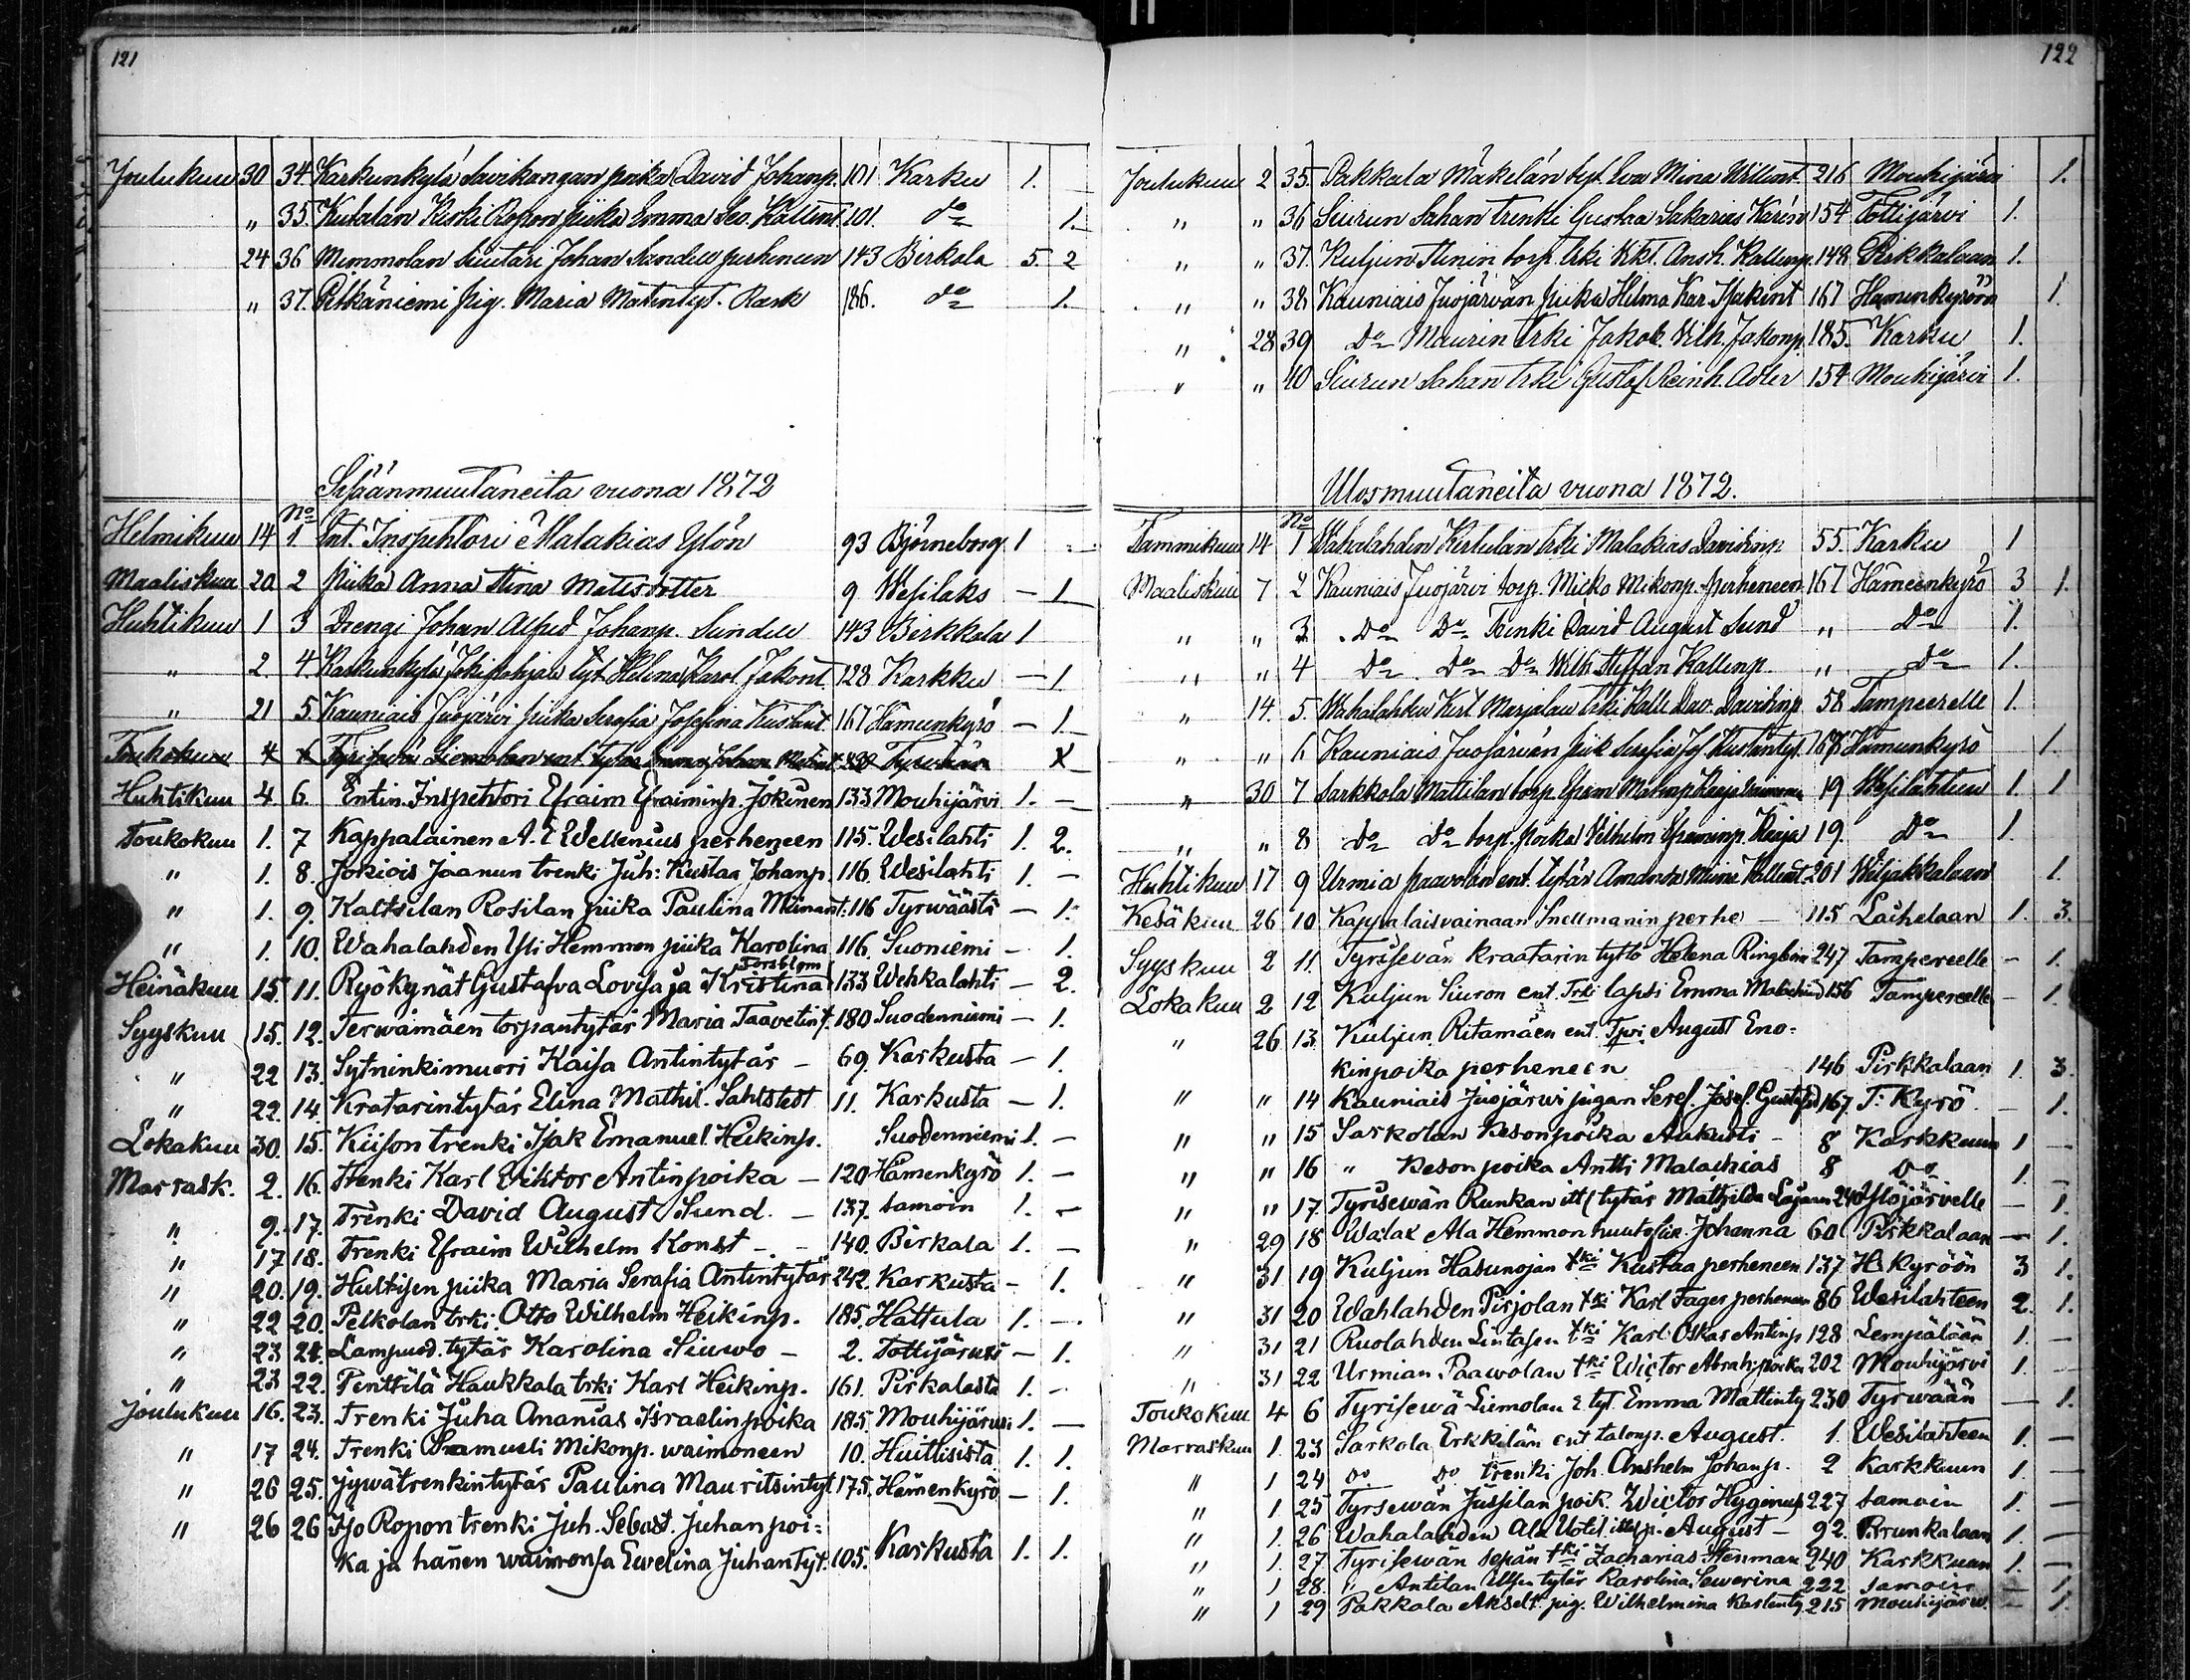 121
Joulukuu 30 34. Karkunkylä Savikangan poika David Johanp. 101 Karku 1. —
" 35. Kutalan Keski Ropon piika Emma Leo. Kallent. 101. do 1.
24 36 Mommolan Suutari Johan Sandell perheneen 143 Birkala 5. 2
" 37. Pitkäniemi pig. Maria Matintyt. Rask 186. do 1.
Sisäänmuutaneita vuona 1872
No
Helmikuu 14 1. Ent. Inspehtori Malakias Ylön 93 Björneborg 1 —
Maaliskuu 20. 2 piika Anna Stina Matsdotter 9 Wesilaks — 1
Huhtikuu 1 3 Drengi Johan Alfred Johanp. Sundell 143 Birkkala 1
" 2. 4. Karkunkylä Jokipohjan tyt. Helena Karol. Jakont. 128 Karkku — 1.
" 21 5. Kauniais Juojärvi piika Serafia Josefina Kustaat. 167 Hämenkyrö — 1.
Toukokuu 4 6 Tyrisevä Liemolan ent. tytär Emma Johan Matint. 230 Tyrwään X
Huhtikuu 4 6. Entin. Inspehtori Efraim Efraiminp. Jokinen 133 Mouhijärvi 1. —
Toukokuu 1. 7 Kappalainen A. E Wellenius perheneen 115. Wesilahti 1. 2.
" 1. 8. Jokiois Jaanun trenki Juh: Kustaa Johanp. 116. Wesilahti 1. —
" 1. 9. Kaltsilan Rosilan piika Paulina Miinant: 116 Tyrwäästä — 1.
" 1. 10. Wahalahden Yli Hemmon piika Karolina 116. Suoniemi — 1.
Forsblom
Heinäkuu 15. 11. Ryökynät Gustafva Lovisa ja Kristina 133 Wehkalahti — 2.
Syyskuu 15. 12. Terwämäen torpantytär Maria Taavetint. 180 Suodenniemi — 1.
" 22 13. Sytninkimuori Kaisa Antintytär — 69. Karkusta — 1.
" 22. 14. Kratarintytär Elina Mathil. Sahlstedt 11. Karkusta — 1.
Lokakuu 30. 15. Kiison trenki Isak Emanuel. Heikinp. Suodenniemi 1. —
Marrask. 2. 16. Trenki Karl Viktor Antinpoika — 120 Hämenkyrö 1. —
" 9. 17. Trenki David August Sund. — 137. samoin 1. —
" 17 18. Trenki Efraim Wilhelm Konst — 140. Birkala 1. —
" 20. 19. Hultisen piika Maria Serafia Antintytär 242. Karkusta — 1.
" 22 20. Pelkolan trki. Otto Wilhelm Heikinp. 185. Hattula 1. —
" 23 21. Lampuod. tytär Karolina Siuwo — 2. Tottijärvi — 1.
" 23 22. Penttilä Haukkala trki Karl Heikinp. 161. Pirkalasta 1. —
Joulukuu 16. 23. Trenki Juha Ananias Israelinpoika 185. Mouhijärvi 1. —
" 17 24. Trenki Samueli Mikonp. waimoneen 10. Huittisista 1. 1.
" 26 25. Jywätrenkintytär Paulina Mauritsintyt. 175. Hämenkyrö — 1.
" 26 26 Iso Ropon trenki Juh. Sebast. Juhanpoi=
ka ja hänen waimonsa Ewelina Juhantyt. 105. Karkusta 1. 1.
122
Joulukuu 2 35. Pakkala Mäkelän tyt. Eva Mina Willent. 216 Mouhijärvi 1.
" " 36 Siurun Sahan trenki Gustaa Sakarias Karén 154 Tottijärvi 1.
" " 37. Kuljun torp. trki Vikt. Ansh. Kallenp. 148. Pirkkalaan 1.
" " 38 Kauniais Juojärvän piika Helma Kar. Isakint 167 Hämenkyröön 1.
" 28 39 Do Maurin trki Jakob. Vilh. Jakonp. 185. Karku 1.
" " 40 Siurun Sahan trki Gustaf Reinh. Adler 154 Mouhijärvi 1.
Ulosmuutaneita vuona 1872.
No
Tammikuu 14 1 Wahalahden Kerttulan trki Malakias Davidinp 55. Karku 1
Maaliskuu 7 2 Kauniais Juojärvi torp. Micko Mikonp. perheneen 167 Hämeenkyrö 3 1.
" " 3 Do Do Trenki David August Sund " Do 1.
" " 4 Do Do Do Wilh. Steffan Kallenp. " Do 1.
" 14. 5. Wahalahden Kert. Marjalan trki Kalle Dav. Davidinp 58 Tampeerelle 1.
" " 6 Kauniais Juojärvän piik Serafia Jos Kustantyt. 167 Hämenkyrö 1.
" 30 7 Sarkkola Mattilan torp. Efraim Matinp Karja 19 Wesilahteen 1 1
" " 8 do do torp. poika Vilhelm Efraiminp. Karja 19. Do 1.
Huhtikuu 17 9 Urmia paavolan ent. tytär Amanda Miina Kallent. 201 Wiljakkalaan 1.
Kesäkuu 26 10 Kappalaisvainaan Snellmanin perhe — 115 Laihelaan 1. 3.
Syyskuu 2 11. Tyrisevän kraatarin tyttö Helena Ringbom 247 Tampereelle — 1.
Lokakuu 2 12 Kuljun Siuron ent. Trki lapsi Emma Malachint 156 Tampereelle — 1.
" 26 13 Kuljun Ritamäen ent. Tpri August Eno=
kinpoika perheneen 146 Pirkkalaan 1. 3.
" " 14 Kauniais Juojärwi pigan Seref. Josef. Gustafsd 167 T: Kyrö. — 1.
" " 15 Sarkolan Kesonpoika Aukusti — 8 Karkkuun 1 —
" " 16 " Keson poika Antti Malachias 8 Do 1. —
" " 17. Tyrisewän Runkan itt( tytär Mathilda 240 Ylöjärvelle — 1.
" 29 18 Walak Ala Hemmon Johanna 60 Pirkkalaan — 1.
" 31 19 Kuljun Hasunojan tki Kustaa perheneen 137 H. Kyröön 3 1.
" 31 20 Wahlahden Pirjolan tki Karl Fager perheneen 86 Wesilahteen 2. 1.
" 31 21 Ruolahden Lintasen tki Karl Oskar Antinp 128 Lempäälään 1. —
" 31 22 Urmian Paawolan tki Wictor Abrah: poika 202 Mouhijärvi 1. —
Toukokuu 4 6 Tyrisewä Liemolan E. tyt. Emma Mattinty 230 Tyrwään — 1.
Marraskuu 1. 23 Sarkola Erkkilän ent talonp. August. 1. Wesilahteen 1. —
" 1 24 Do Do trenki Joh. Anshelm Johanp. 2 Karkkuun 1. —
" 1. 25 Tyrsewän Jussilan poik. Wictor Hyginus 227 samoin 1. —
" 1. 26 Wahalahden Ala Uotil. ittsp. August — 92. Prunkalaan 1. —
" 1. 27 Tyrisewän Sepän tki Zacharias Stenman 240 Karkkuun 1. —
" 1 28. " Antilan tytär Karolina Sewerina 222 samoin — 1.
" 1 29 Pakkala Akselt. pig. Wilhelmina Karlinty 215 Mouhijärw. — 1.